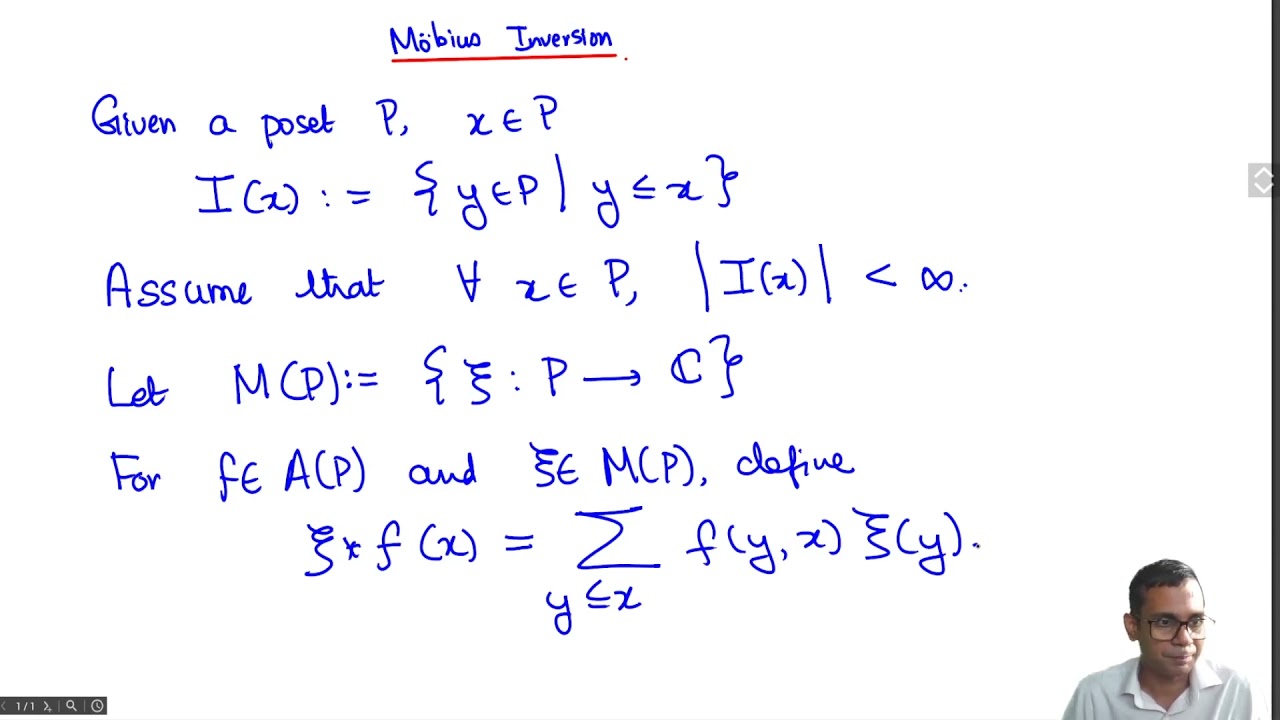 Möbius Inversion.
Given a poset P, x ∈ P
I(x) := { y ∈ P | y ≤ x }
Assume that ∀ x ∈ P, |I(x)| < ∞.
Let M(P) := { ξ : P ⟶ ℂ }
For f ∈ A(P) and ξ ∈ M(P), define
ξ * f (x) = ∑ f(y, x) ξ(y).
y ≤ x
1/1